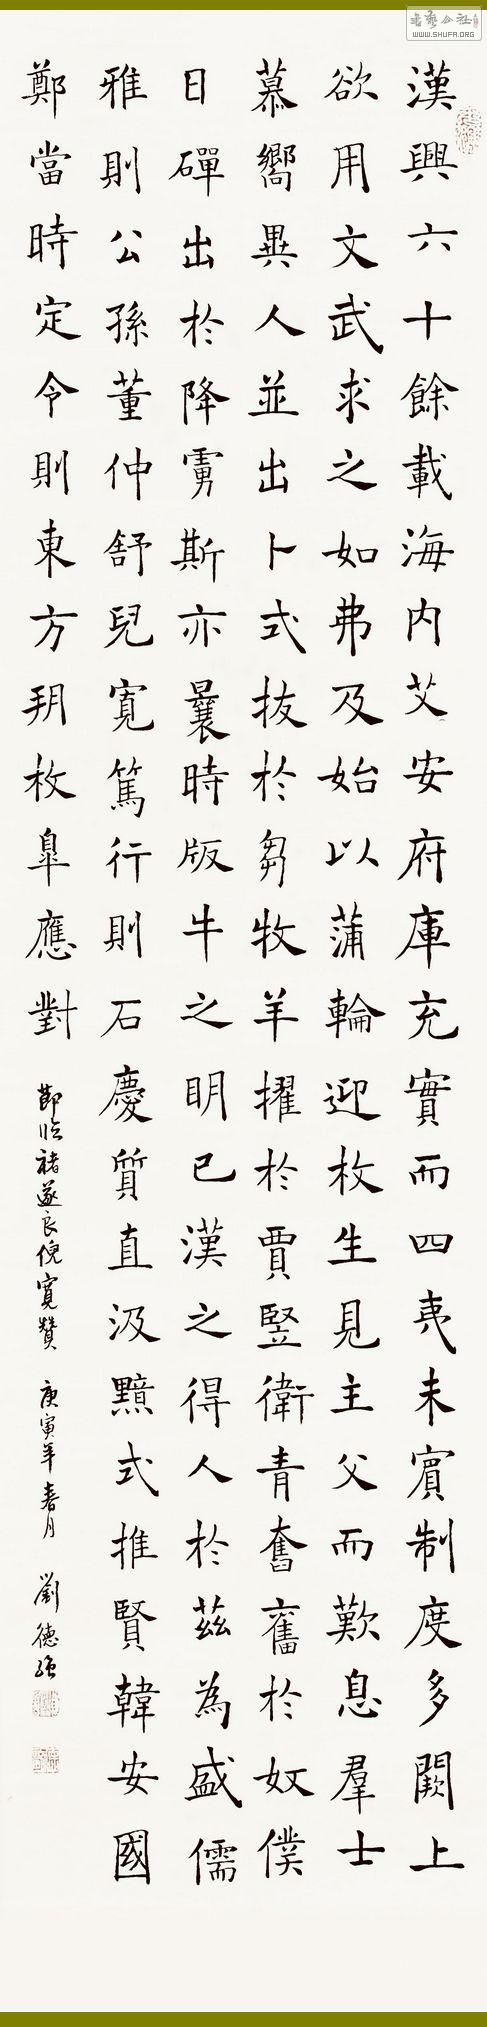 漢興六十餘載海内艾安府庫充實而四夷未賓制度多闕上
欲用文武求之如弗及始以蒲輪迎枚生見主父而歎息羣士
慕嚮異人並出卜式拔於芻牧羊擢於賈豎衛青奮舊於奴僕
日磾出於降虜斯亦曩時版牛之明已漢之得人於茲為盛儒
雅則公孫董仲舒兒寬篤行則石慶質直汲黯式推賢韓安國
鄭當時定令則東方朔枚皋應對
節臨褚遂良倪寬贊 庚寅年春月 劉德強
書藝公社
WWW.SHUFA.ORG